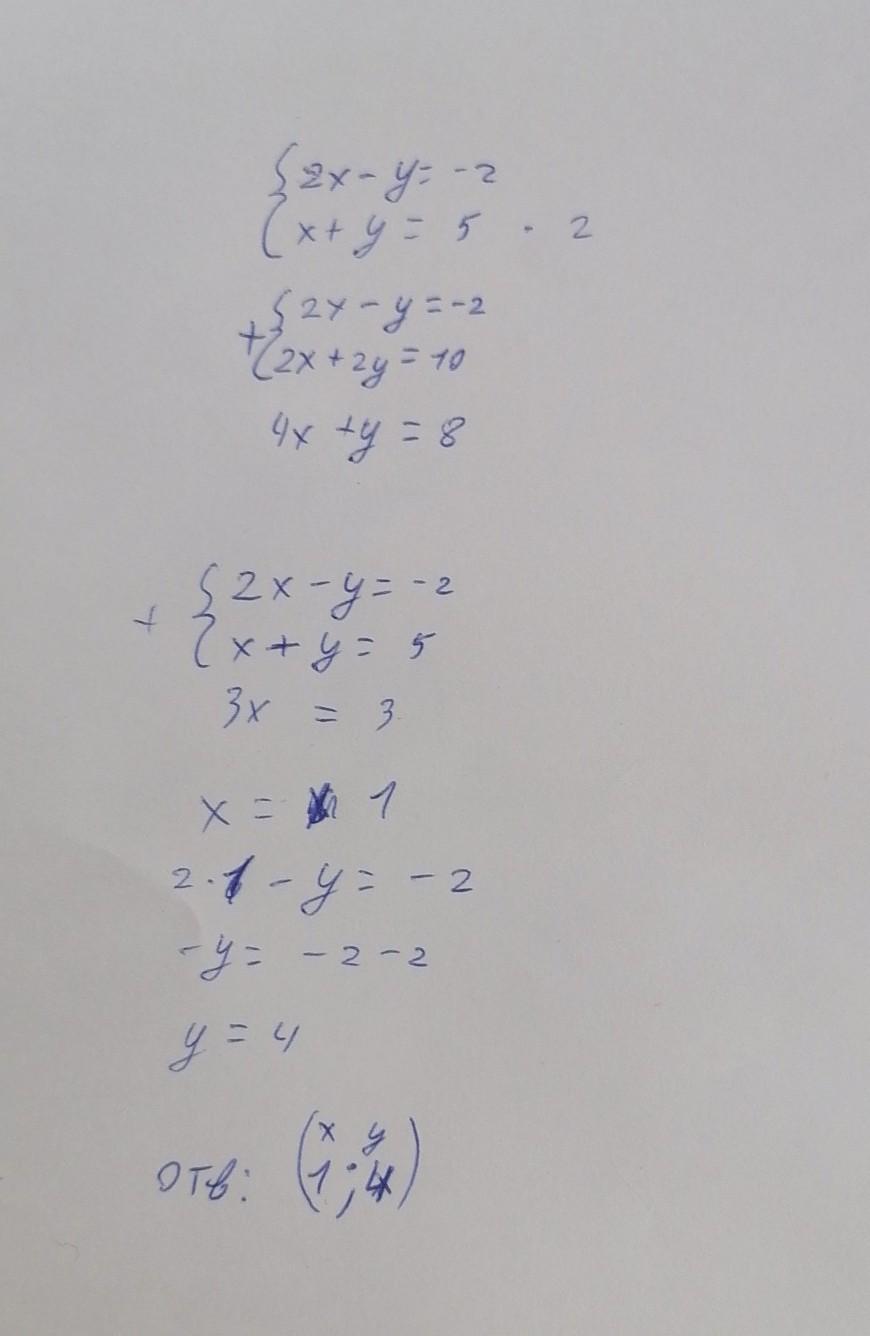 {2x - y = -2
{x + y = 5 · 2
+{2x - y = -2
{2x + 2y = 10
4x + y = 8
+ {2x - y = -2
{x + y = 5
3x = 3
x = 1
2 · 1 - y = -2
-y = -2 - 2
y = 4
x y
Отв: (1 ; 4)